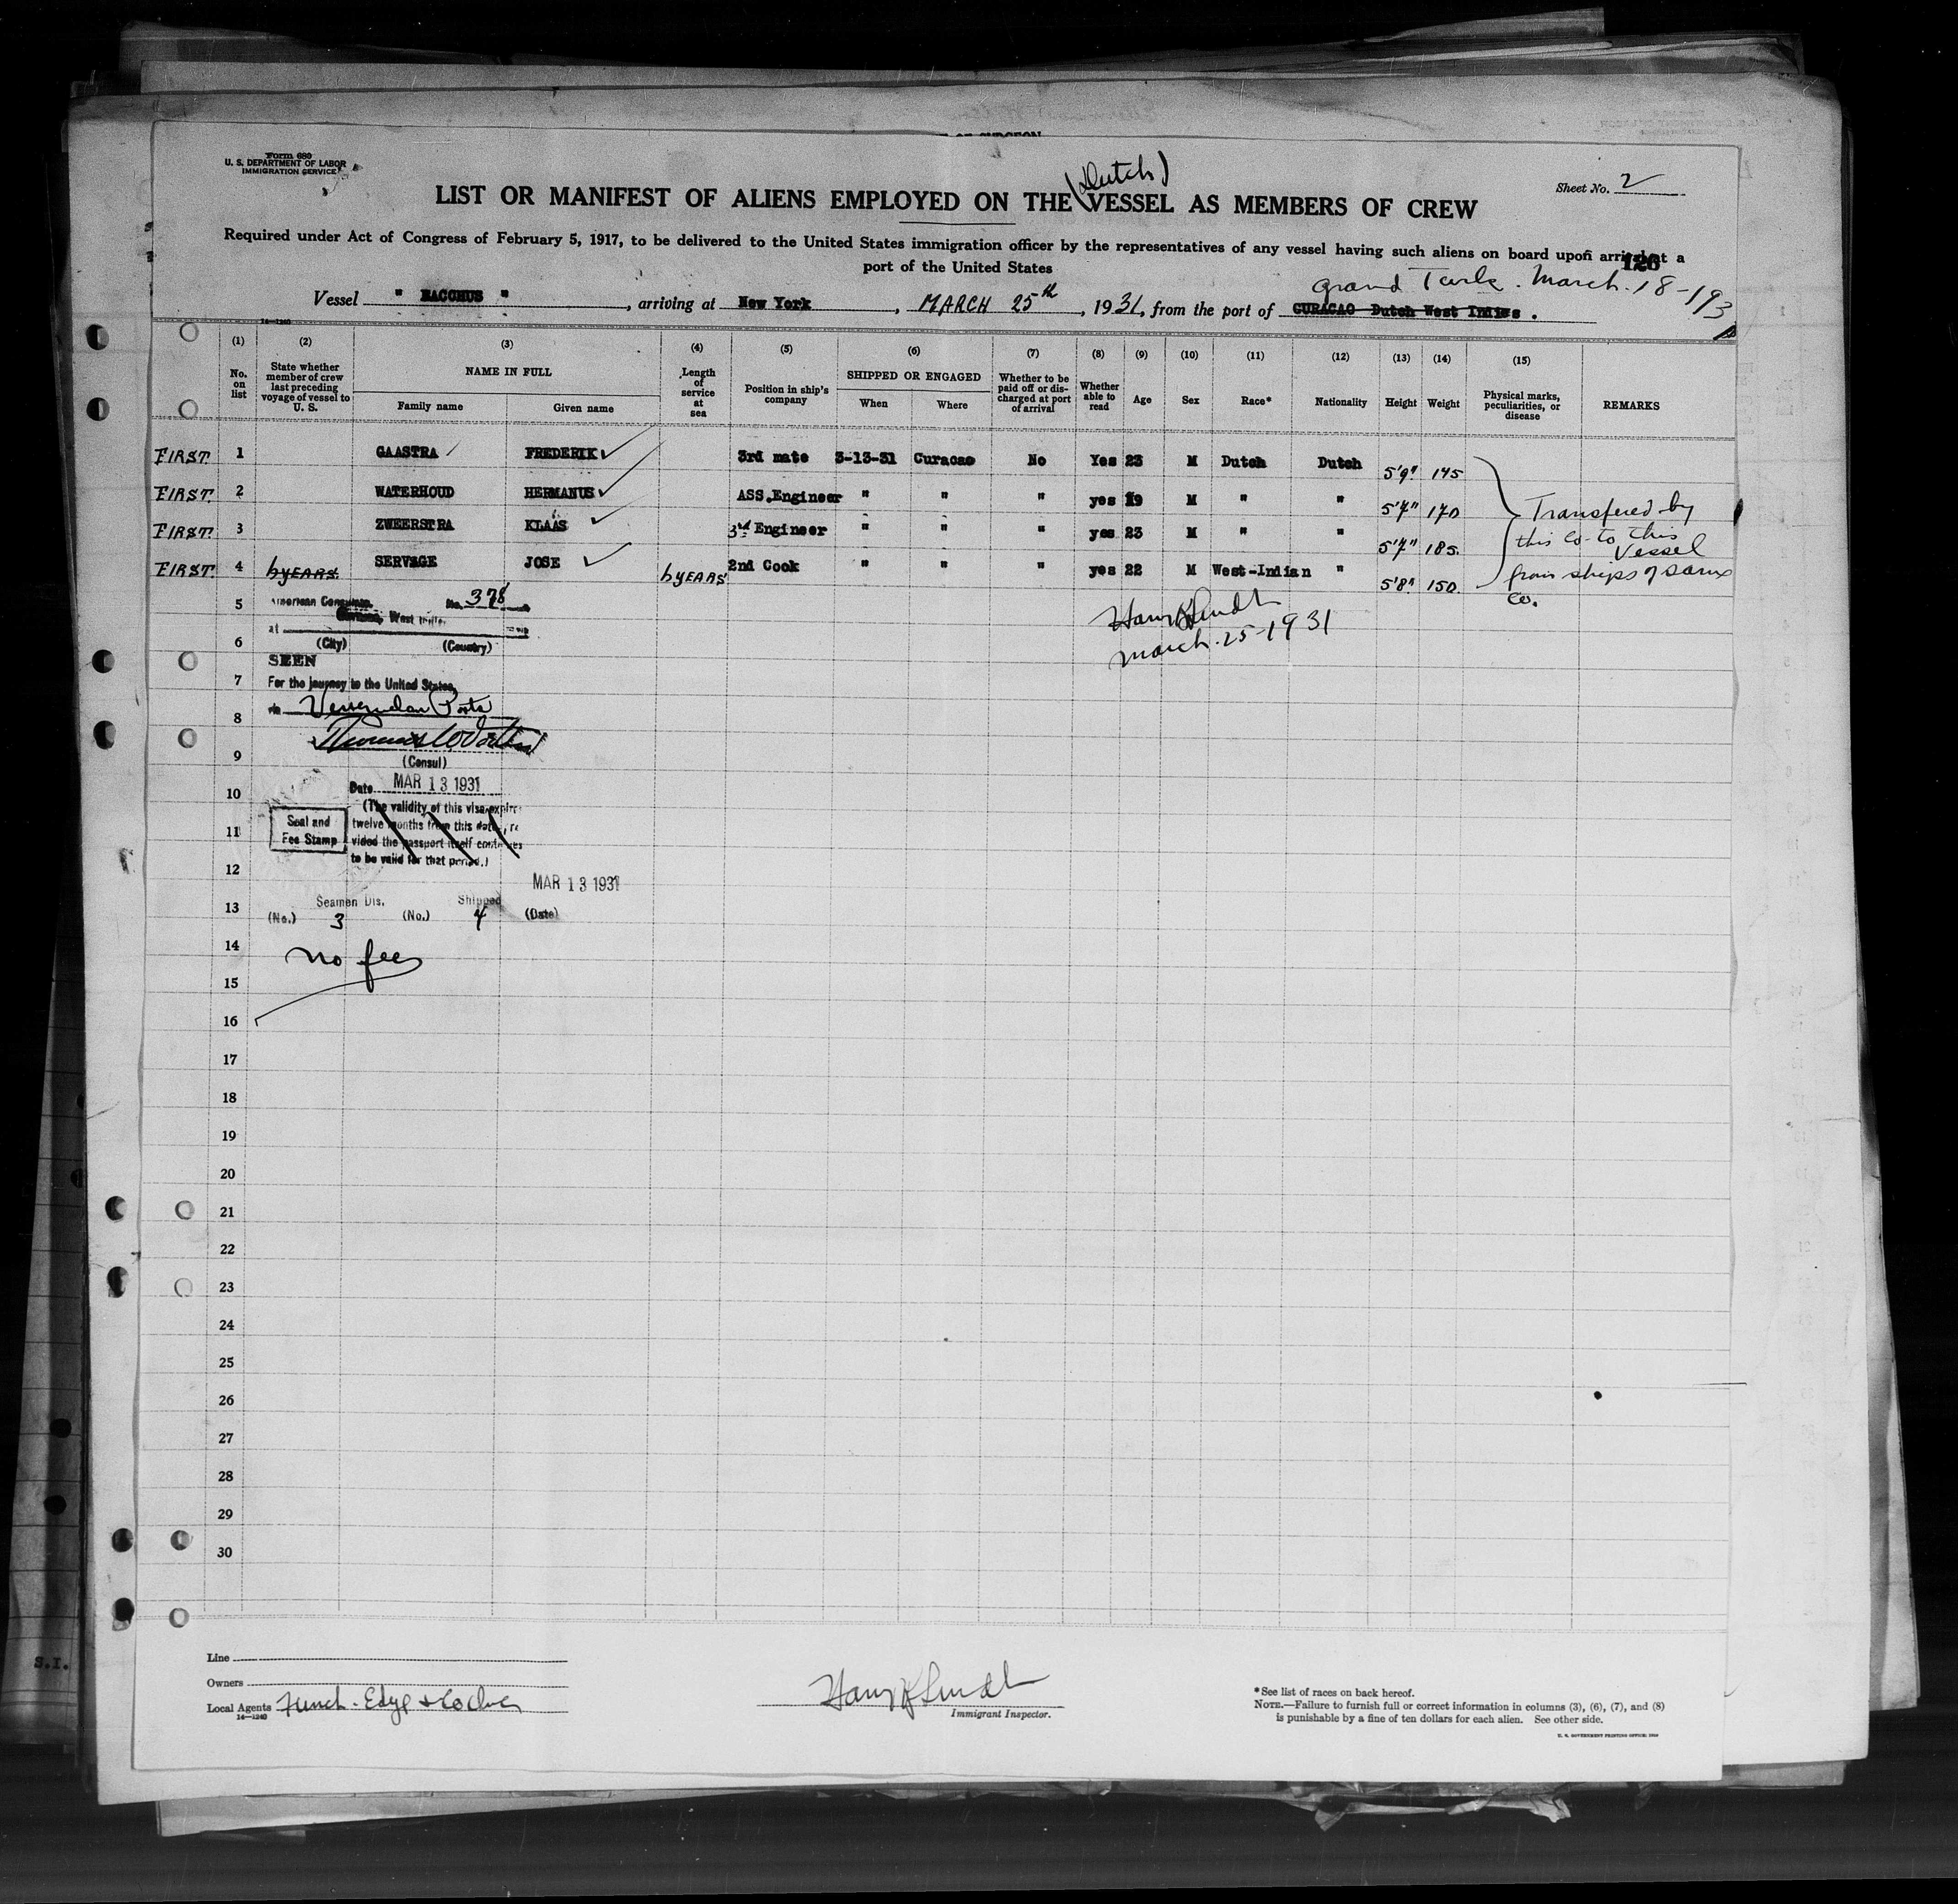 Form 680
U. S. DEPARTMENT OF LABOR
IMMIGRATION SERVICE
(Dutch)
Sheet No. 2
LIST OR MANIFEST OF ALIENS EMPLOYED ON THE VESSEL AS MEMBERS OF CREW
Required under Act of Congress of February 5, 1917, to be delivered to the United States immigration officer by the representatives of any vessel having such aliens on board upon arrival at a
port of the United States
126
Grand Turk. March. 18-1931
Vessel " BACCHUS ", arriving at New York, MARCH 25th, 1931, from the port of CURACAO Dutch West Indies.
14—1240
(1) (2) (3) (4) (5) (6) (7) (8) (9) (10) (11) (12) (13) (14) (15)
No. on list
State whether member of crew last preceding voyage of vessel to U. S.
NAME IN FULL
Family name
Given name
Length of service at sea
Position in ship's company
SHIPPED OR ENGAGED
When
Where
Whether to be paid off or discharged at port of arrival
Whether able to read
Age
Sex
Race*
Nationality
Height
Weight
Physical marks, peculiarities, or disease
REMARKS
FIRST. 1 GAASTRA FREDERIK 3rd mate 3-13-31 Curacao No Yes 23 M Dutch Dutch 5'9" 145
FIRST. 2 WATERHOUD HERMANUS ASS.Engineer " " " yes 19 M " " 5'7" 170
FIRST. 3 ZWEERSTRA KLAAS 3rd Engineer " " " yes 23 M " " 5'7" 185.
FIRST. 4 6 YEARS. SERVAGE JOSE 6 YEARS 2nd Cook " " " yes 22 M West-Indian " 5'8" 150.
Transfered by
this Co. to this
Vessel
from ships of same
Co.
5
American Consulate No. 378
Curacao, West Indies
at
6
(City) (Country)
SEEN
7
For the journey to the United States,
via Venezuelan Ports
8
9
(Consul)
Date MAR 13 1931
10
(The validity of this visa expires
twelve months from this date, provided
the passport itself continues
to be valid for that period.)
Seal and
Fee Stamp
11
12
MAR 13 1931
Seamen Dis. Shipped
13
(No.) 3 (No.) 4 (Date)
14
No fee
15
16
17
18
19
20
21
22
23
24
25
26
27
28
29
30
March. 25-1931
S.I.
Line
Owners
Local Agents Funch. Edye & Co Inc
14—1240
Immigrant Inspector.
*See list of races on back hereof.
NOTE.—Failure to furnish full or correct information in columns (3), (6), (7), and (8)
is punishable by a fine of ten dollars for each alien. See other side.
U. S. GOVERNMENT PRINTING OFFICE: 1929